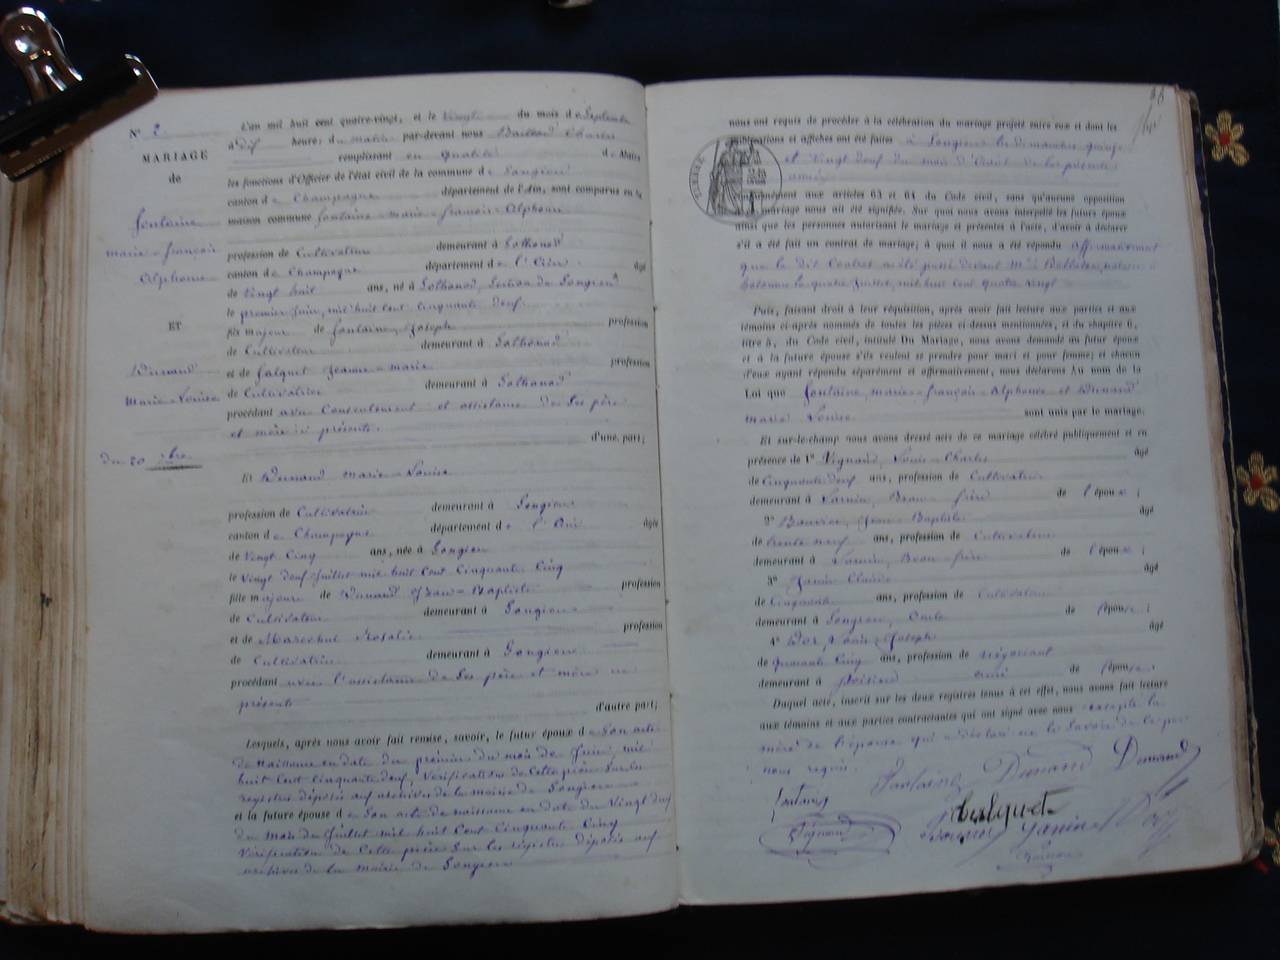 N° 2
MARIAGE
de
fontaine
marie-françois
Alphonse
ET
Dunand
Marie-Louise
du 20 7bre
L'an mil huit cent quatre-vingt, et le Vingt du mois de Septembre
à Dix heures du matin par-devant nous Baillod Charles
remplissant en qualité de Maire
les fonctions d'Officier de l'état civil de la commune de Songieu
canton de Champagne département de l'Ain, sont comparus en la
maison commune fontaine marie-françois-Alphonse
profession de Cultivateur demeurant à Sothonod
canton de Champagne département de l'Ain âgé
de Vingt huit ans, né à Sothonod, Section de Songieu
le premier Juin, mil huit cent cinquante deux
fils majeur de fontaine Joseph profession
de Cultivateur demeurant à Sothonod
et de falquet Jeanne-marie profession
de Cultivatrice demeurant à Sothonod
procédant avec Consentement et assistance de Ses père
et mère ici présents. d'une part;
Et Dunand Marie-Louise
profession de Cultivatrice demeurant à Songieu
canton de Champagne département de l'Ain âgée
de Vingt Cinq ans, née à Songieu
le Vingt deux Juillet mil huit Cent Cinquante Cinq
fille majeure de Dunand Jean-Baptiste profession
de Cultivateur demeurant à Songieu
et de Maréchal Rosalie profession
de Cultivatrice demeurant à Songieu
procédant avec l'assistance de Ses père et mère ici
présents d'autre part;
Lesquels, après nous avoir fait remise, savoir, le futur époux de Son acte
de Naissance en date du premier du mois de Juin, mil
huit Cent Cinquante deux, Vérification de Cette pièce Sur les
registres déposés aux archives de la mairie de Songieu
et la future épouse de Son acte de naissance en Date du Vingt deux
du mois de Juillet mil huit Cent Cinquante Cinq
Vérification de Cette pièce Sur les registres déposés aux
archives de la mairie de Songieu
nous ont requis de procéder à la célébration du mariage projeté entre eux et dont les
publications et affiches ont été faites à Songieu les dimanches quinze
et Vingt deux du mois d'Août de la présente
année
conformément aux articles 63 et 64 du Code civil, sans qu'aucune opposition
au mariage nous ait été signifiée. Sur quoi nous avons interpellé les futurs époux
ainsi que les personnes autorisant le mariage et présentes à l'acte, d'avoir à déclarer
s'il a été fait un contrat de mariage; à quoi il nous a été répondu affirmativement
que le dit Contrat a été passé devant Me notaire à
le quatre Juillet, mil huit Cent quatre vingt
Puis, faisant droit à leur réquisition, après avoir fait lecture aux parties et aux
témoins ci-après nommés de toutes les pièces ci-dessus mentionnées, et du chapitre 6,
titre 5, du Code civil, intitulé Du Mariage, nous avons demandé au futur époux
et à la future épouse s'ils veulent se prendre pour mari et pour femme; et chacun
d'eux ayant répondu séparément et affirmativement, nous déclarons Au nom de la
Loi que fontaine, marie-françois-Alphonse et Dunand
marie Louise sont unis par le mariage.
Et sur-le-champ nous avons dressé acte de ce mariage célébré publiquement et en
présence de 1° Vignand, Louis-Charles âgé
de Cinquante deux ans, profession de Cultivateur
demeurant à Beau-frère de l'époux;
2° Jean-Baptiste âgé
de trente neuf ans, profession de Cultivateur
demeurant à Beau-frère de l'époux;
3° Janin Claude âgé
de Cinquante ans, profession de Cultivateur
demeurant à Songieu, Oncle de l'épouse;
4° Louis Joseph âgé
de quarante Cinq ans, profession de négociant
demeurant à ami de l'épouse.
Duquel acte, inscrit sur les deux registres tenus à cet effet, nous avons fait lecture
aux témoins et aux parties contractantes qui ont signé avec nous excepté la
mère de l'épouse qui a déclaré ne le Savoir de ce par
nous requis.
fontaine Fontaine Dunand Dunand
falquet
Vignand Janin